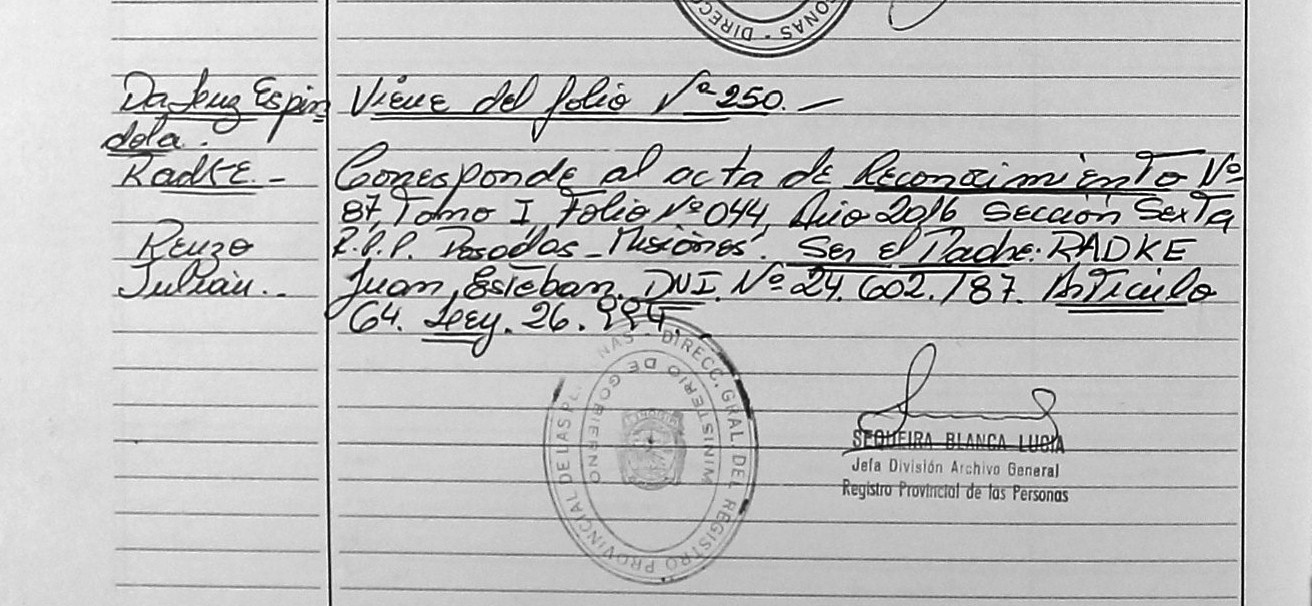 ONAS - DIRECC
Da Luz Espin
dola.
Radke. -
Renzo
Julián. -
Viene del folio Nº 250. -
Corresponde al acta de Reconocimiento Nº
87, Tomo I, Folio Nº 044, Año 2016 Sección Sexta
R.P.P. Posadas - Misiones. Ser el Padre: RADKE
Juan Esteban. DNI. Nº 24.602.187. Artículo
64. Ley. 26.994.
DIRECC. GRAL. DEL REGISTRO PROVINCIAL DE LAS PE NAS -
MINISTERIO DE GOBIERNO
SEQUEIRA BLANCA LUCIA
Jefa División Archivo General
Registro Provincial de las Personas